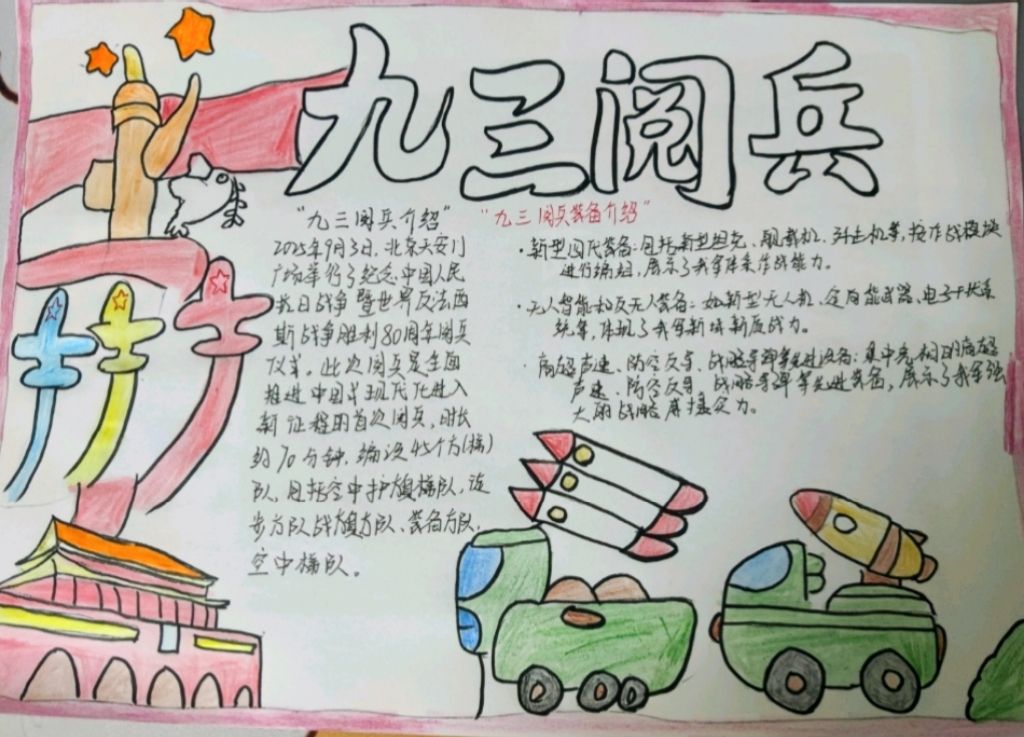 九三阅兵
"九三阅兵介绍"
2025年9月3日，北京天安门
广场举行了纪念中国人民
抗日战争暨世界反法西
斯战争胜利80周年阅兵
仪式。此次阅兵是全面
推进中国式现代化进入
新征程的首次阅兵，时长
约70分钟，编设45个方(梯)
队，包括空中护旗梯队，徒
步方队战旗方队、装备方队、
空中梯队。
"九三阅兵装备介绍"
·新型四代装备：包括新型坦克、舰载机、歼击机等，按作战模块
进行编组，展示了我军体系作战能力。
·无人智能和反无人装备：如新型无人机、定向能武器、电子干扰系
统等，体现了我军新域新质战力。
·高超声速、防空反导、战略导弹等先进设备：集中亮相的高超
声速、防空反导、战略导弹等先进装备，展示了我军强
大的战略威慑实力。